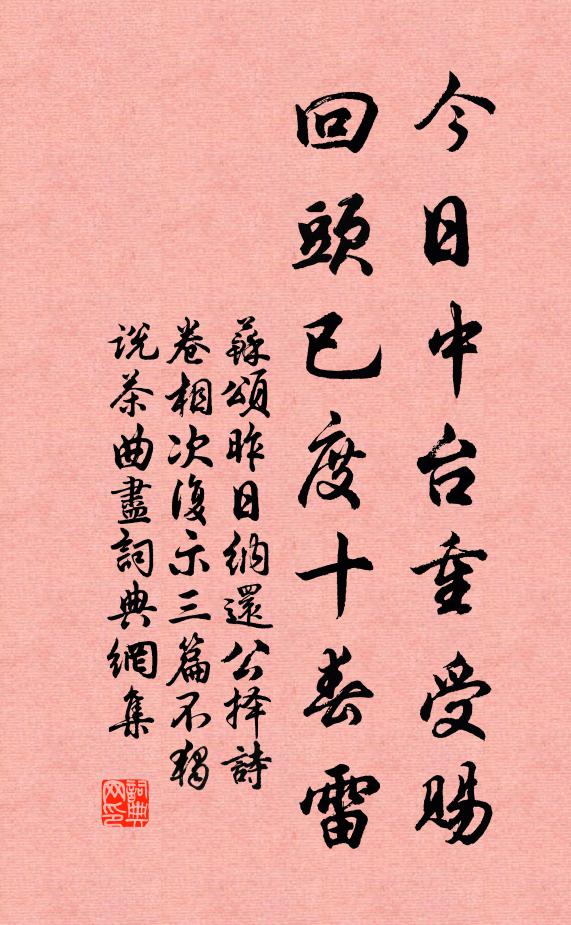 今日中台重受賜
回頭已度十春雷
蘇頌昨日納還公择詩
卷相次復示三篇不獨
说茶曲盡詞典網集
詞典
网印